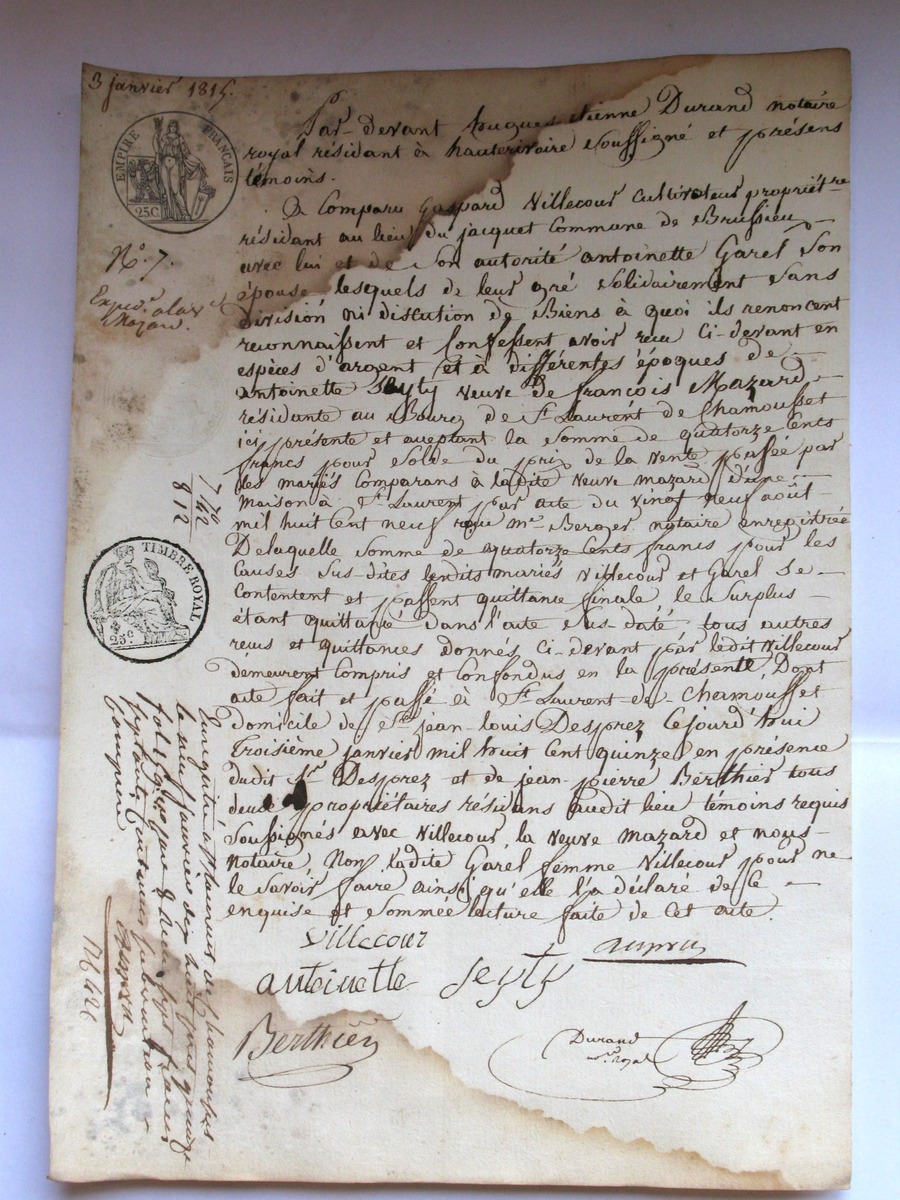 3 janvier 1815.
EMPIRE FRANÇAIS
25C.
Par-devant hugues etienne Durand notaire
royal résidant à hauterivoire soussigné et présens
témoins.
A Comparu Gaspard Villecour Cultivateur propriét-re
résidant au lieu du jacquet Commune de Brussieu
avec lui et de Son autorité antoinette Garel Son
épouse lesquels de leur gré Solidairement Sans
division ni discution de Biens à quoi ils renoncent
reconnaissent et Confessent avoir reçu Ci-devant en
espèces d'argent et à différentes époques de
antoinette Seyty veuve de françois Mazard
résidante au Bourg de St Laurent de Chamousset
ici présente et aceptant la Somme de quatorze Cents
francs pour Solde du prix de la vente passée par
les mariés Comparans à ladite veuve mazard d'une
maison à St Laurent par acte du vingt neuf août
mil huit Cent neuf reçu me Berger notaire enregistrée
De laquelle Somme de quatorze Cents francs pour les
Causes Sus-dites lesdits mariés Villecour et Garel Se
Contentent et passent quittance finale le Surplus
étant quittancé dans l'acte Sus-daté tous autres
reçus et quittances donnés Ci-devant par ledit Villecour
demeurent Compris et Confondus en la présente, Dont
acte fait et passé à St Laurent-de-Chamousset
Domicile de Sr jean-louis Desprez, Cejourd'hui
Troisième janvier mil huit Cent quinze en présence
dudit Sr Desprez et de jean-pierre Berthier tous
deux propriétaires résidans audit lieu témoins requis
Soussignés avec Villecour la veuve mazard et nous
notaire, Non ladite Garel femme Villecour pour ne
le Savoir faire ainsi qu'elle l'a déclaré de Ce
enquise et Sommée lecture faite de Cet acte.
Villecour
antoinette Seyty
Berthier
Durand
no.re royal
No. 7.
Mazard.
7 70
42
8 12
TIMBRE ROYAL
25c
Enregistré à St Laurent de Chamousset
le neuf janvier dix huit cent quinze